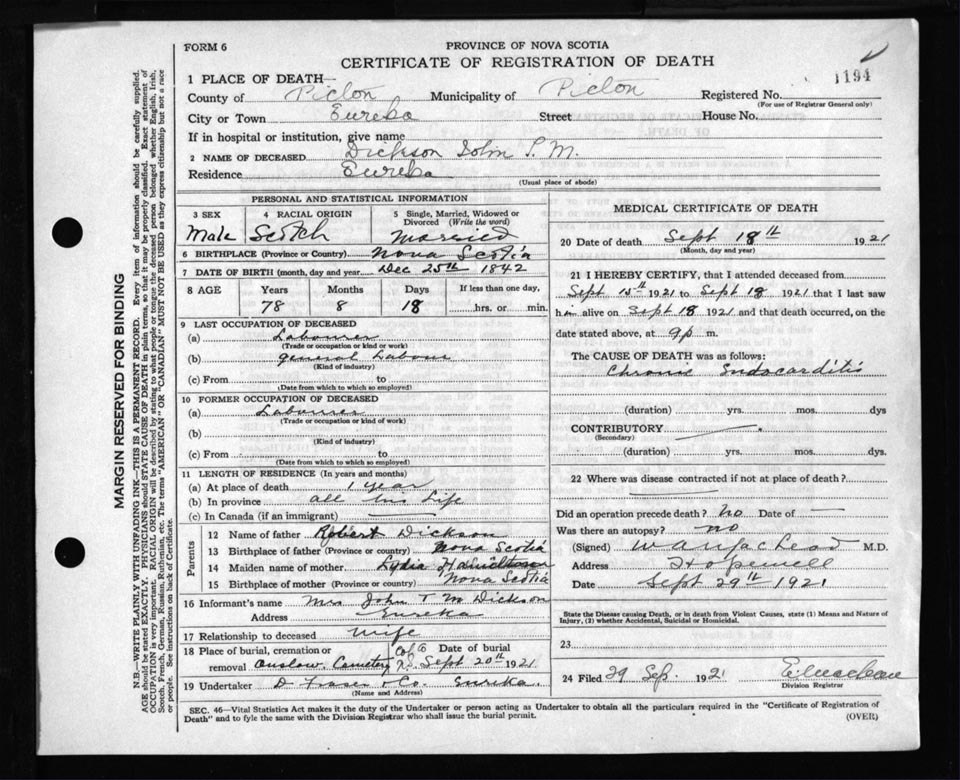 FORM 6
PROVINCE OF NOVA SCOTIA
CERTIFICATE OF REGISTRATION OF DEATH
1194
1 PLACE OF DEATH—
County of Pictou Municipality of Pictou Registered No.
(For use of Registrar General only)
City or Town Eureka Street House No.
If in hospital or institution, give name
2 NAME OF DECEASED Dickson John T. M.
Residence Eureka
(Usual place of abode)
PERSONAL AND STATISTICAL INFORMATION
3 SEX 4 RACIAL ORIGIN 5 Single, Married, Widowed or Divorced (Write the word)
Male Scotch Married
6 BIRTHPLACE (Province or Country) Nova Scotia
7 DATE OF BIRTH (month, day and year) Dec 25th 1842
8 AGE Years Months Days If less than one day,
78 8 18 hrs. or min.
9 LAST OCCUPATION OF DECEASED
(a) Labourer
(Trade or occupation or kind or work)
(b) general Labour
(Kind of industry)
(c) From to
(Date from which to which so employed)
10 FORMER OCCUPATION OF DECEASED
(a) Labourer
(Trade or occupation or kind of work)
(b)
(Kind of industry)
(c) From to
(Date from which to which so employed)
11 LENGTH OF RESIDENCE (In years and months)
(a) At place of death 1 year
(b) In province all his Life
(c) In Canada (if an immigrant)
Parents
12 Name of father Robert Dickson
13 Birthplace of father (Province or country) Nova Scotia
14 Maiden name of mother Lydia
15 Birthplace of mother (Province or country) Nova Scotia
16 Informant's name Mrs John T M Dickson
Address Eureka
17 Relationship to deceased wife
18 Place of burial, cremation or removal Onslow Cemetery Col Co N.S. Date of burial Sept 20th 1921
19 Undertaker D Fraser & Co. Eureka.
(Name and Address)
MEDICAL CERTIFICATE OF DEATH
20 Date of death Sept 18th 1921
(Month, day and year)
21 I HEREBY CERTIFY, that I attended deceased from
Sept 15th 1921 to Sept 18 1921 that I last saw
him alive on Sept 18 1921 and that death occurred, on the
date stated above, at 9p m.
The CAUSE OF DEATH was as follows:
Chronic Endocarditis
(duration) yrs. mos. dys
CONTRIBUTORY
(Secondary)
(duration) yrs. mos. dys.
22 Where was disease contracted if not at place of death?
Did an operation precede death? No Date of —
Was there an autopsy? no
(Signed) M.D.
Address Hopewell
Date Sept 29th 1921
State the Disease causing Death, or in death from Violent Causes, state (1) Means and Nature of
Injury, (2) whether Accidental, Suicidal or Homicidal.
23
24 Filed 29 Sep. 1921
Division Registrar
SEC. 46—Vital Statistics Act makes it the duty of the Undertaker or person acting as Undertaker to obtain all the particulars required in the "Certificate of Registration of
Death" and to fyle the same with the Division Registrar who shall issue the burial permit.
(OVER)
MARGIN RESERVED FOR BINDING
N.B.—WRITE PLAINLY WITH UNFADING INK—THIS IS A PERMANENT RECORD. Every item of information should be carefully supplied.
AGE should be stated EXACTLY. PHYSICIANS should STATE CAUSE OF DEATH in plain terms, so that it may be properly classified. Exact statement of
OCCUPATION is very important. RACIAL ORIGIN will be described by stating to what people or tongue the deceased person belonged whether English, Irish,
Scotch, French, German, Russian, Ruthenian, etc. The terms "AMERICAN" OR "CANADIAN" MUST NOT BE USED as they express citizenship but not a race
or people. See instructions on back of Certificate.